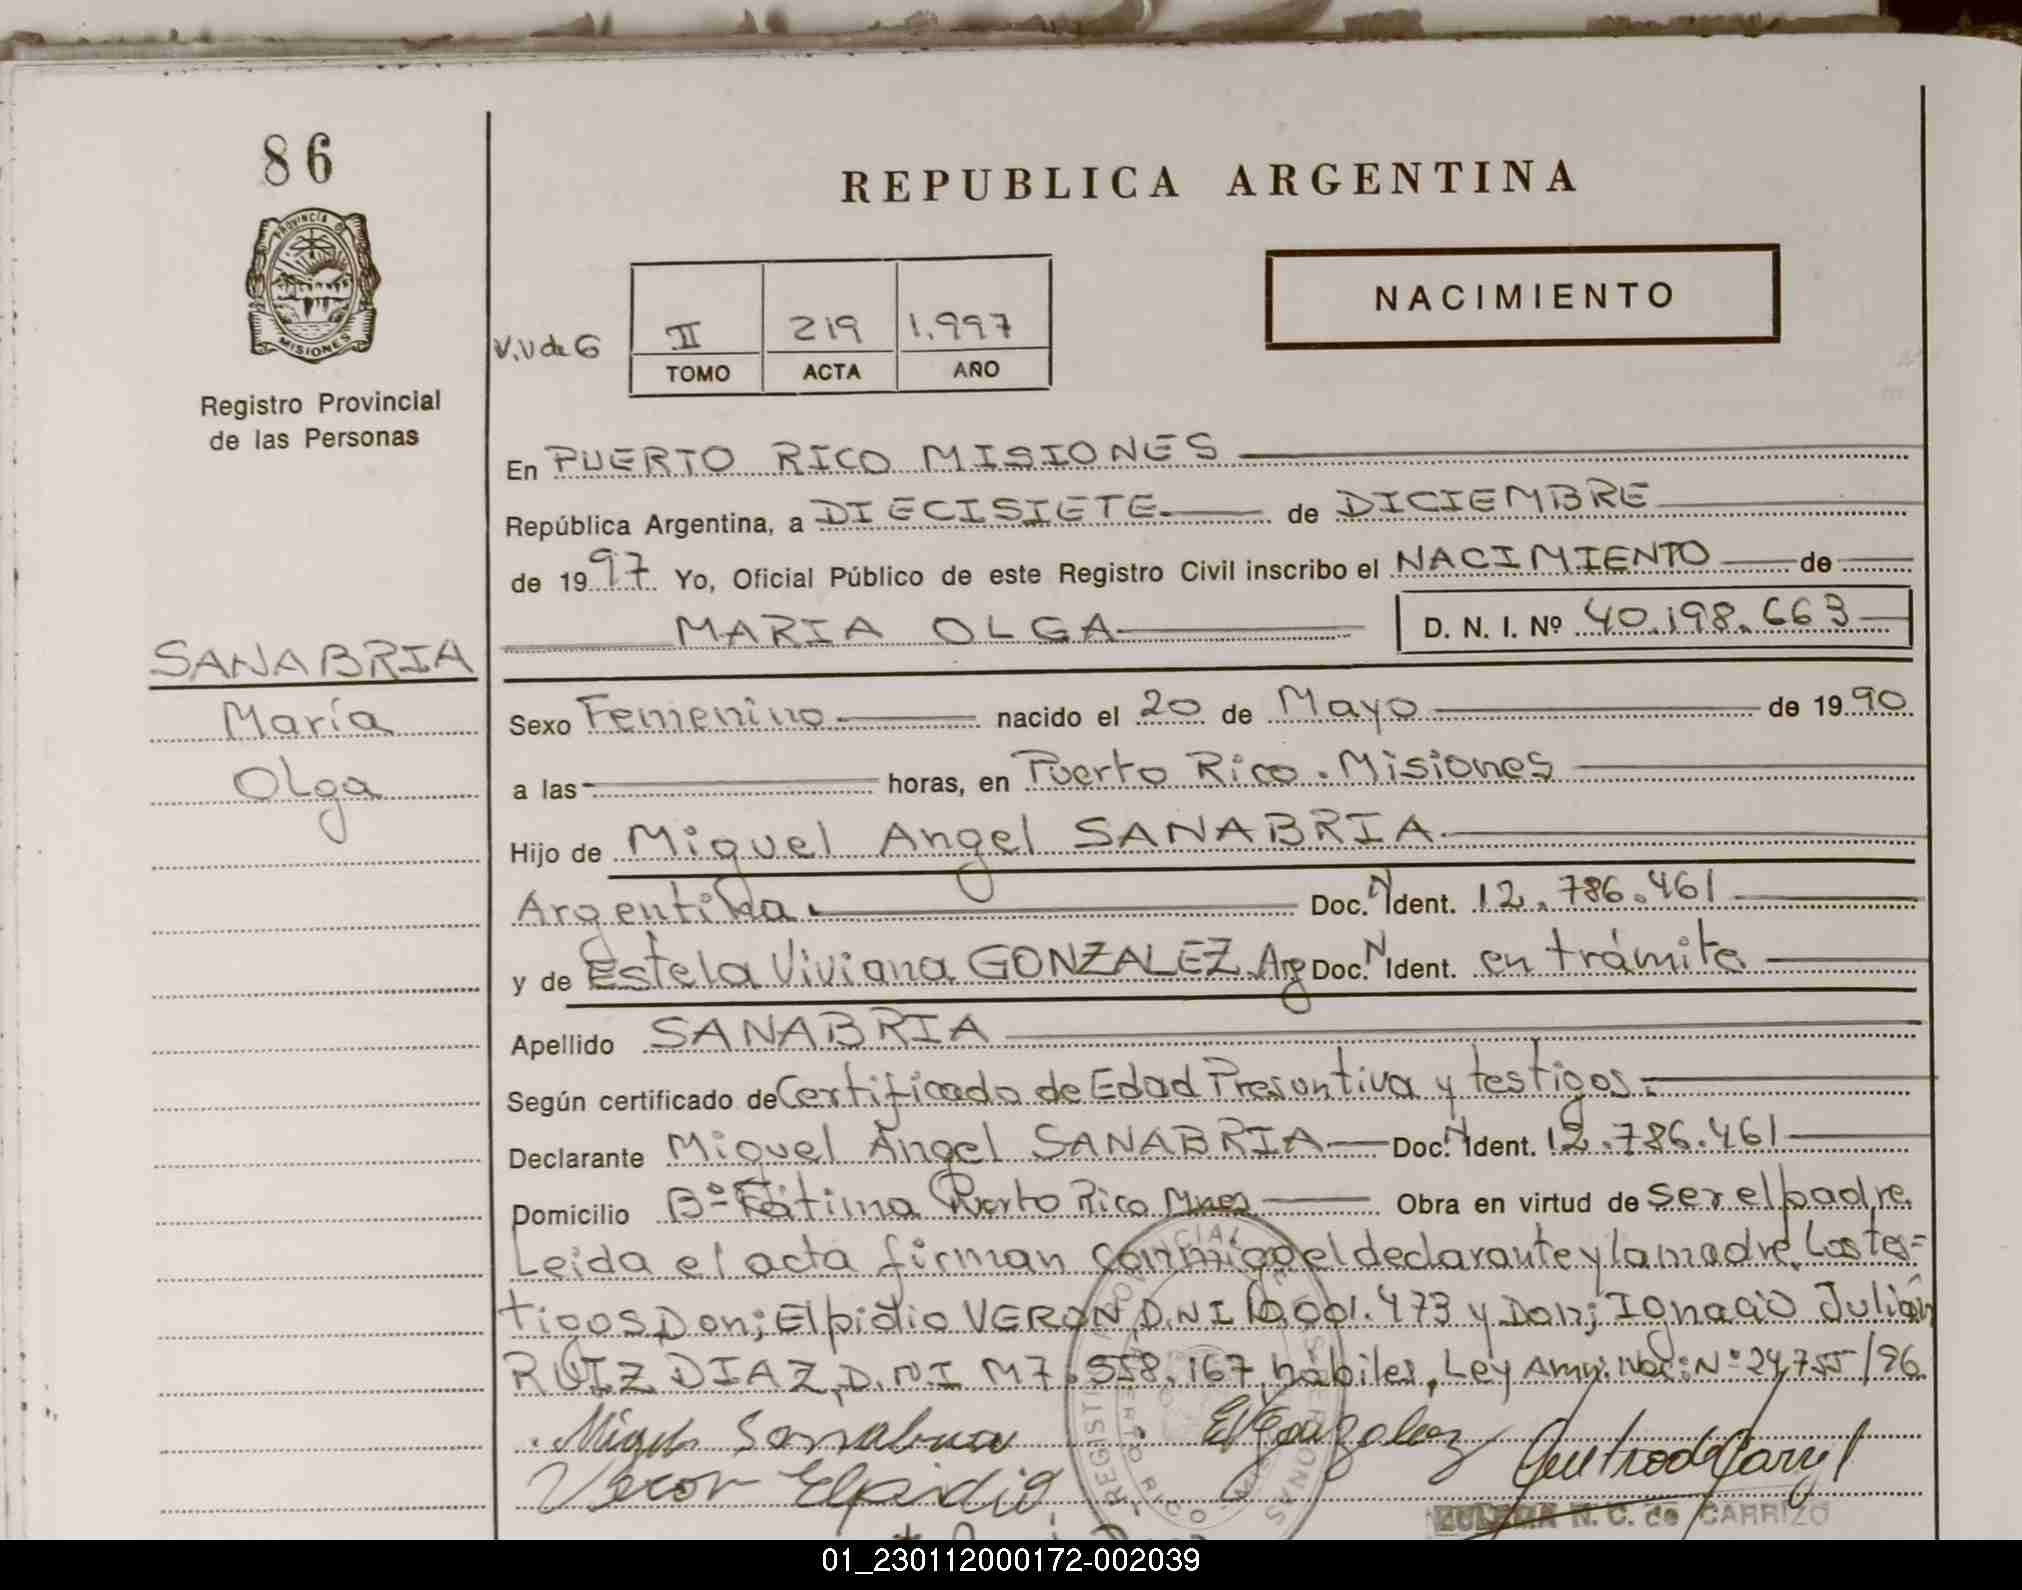 86
REPUBLICA ARGENTINA
PROVINCIA DE
MISIONES
NACIMIENTO
V.V de G
II 219 1.997
TOMO ACTA AÑO
Registro Provincial
de las Personas
En PUERTO RICO MISIONES
República Argentina, a DIECISIETE de DICIEMBRE
de 1997 Yo, Oficial Público de este Registro Civil inscribo el NACIMIENTO de
MARIA OLGA D. N. I. Nº 40.198.663
SANABRIA
María
Olga
Sexo Femenino nacido el 20 de Mayo de 1990
a las horas, en Puerto Rico. Misiones
Hijo de Miguel Angel SANABRIA
Argentina Doc. N Ident. 12.786.461
y de Estela Viviana GONZALEZ Arg Doc. N Ident. en trámite
Apellido SANABRIA
Según certificado de Certificado de Edad Presuntiva y testigos.
Declarante Miguel Angel SANABRIA Doc. N Ident. 12.786.461
Domicilio Bº Fátima Puerto Rico Mnes Obra en virtud de ser el padre.
Leida el acta firman conmigo el declarante y la madre. Los tes=
tigos Don; Elpidio VERON, D.N.I 10.001.473 y Don; Ignacio Julián
RUIZ DIAZ, D.N.I M7.558.167, hábiles, Ley Amn. Nac: Nº 24.755/96.
Miguel Sanabria
EVGonzalez
Veron Elpidio
N. C. de CARRIZO
01_230112000172-002039